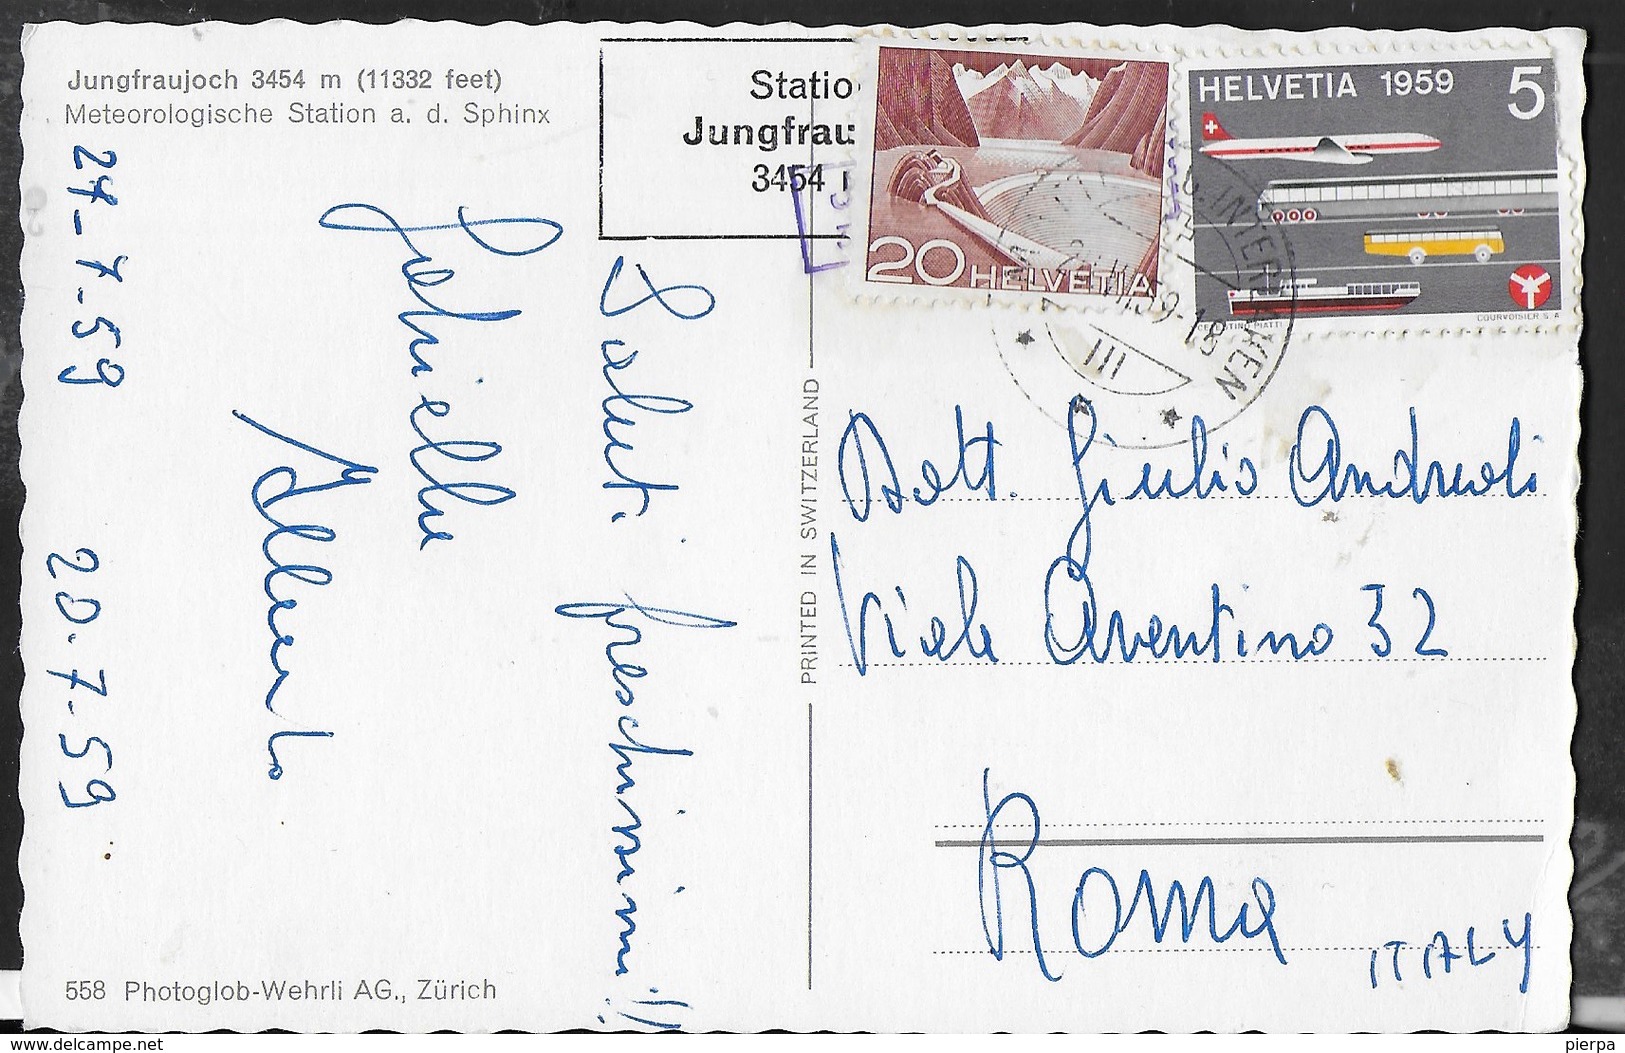 Jungfraujoch 3454 m (11332 feet)
Meteorologische Station a. d. Sphinx
Statio
Jungfrau
3454
20 HELVETIA
HELVETIA 1959 5
CELESTINO PIATTI
COURVOISIER S.A
INTERLAKEN
III
PRINTED IN SWITZERLAND
Saluti freschissimi!!
Gabriella
Alberto
20.7.59
Dott. Giulio Andreoli
Viale Aventino 32
Roma
ITALY
558 Photoglob-Wehrli AG., Zürich
www.delcampe.net
pierpa